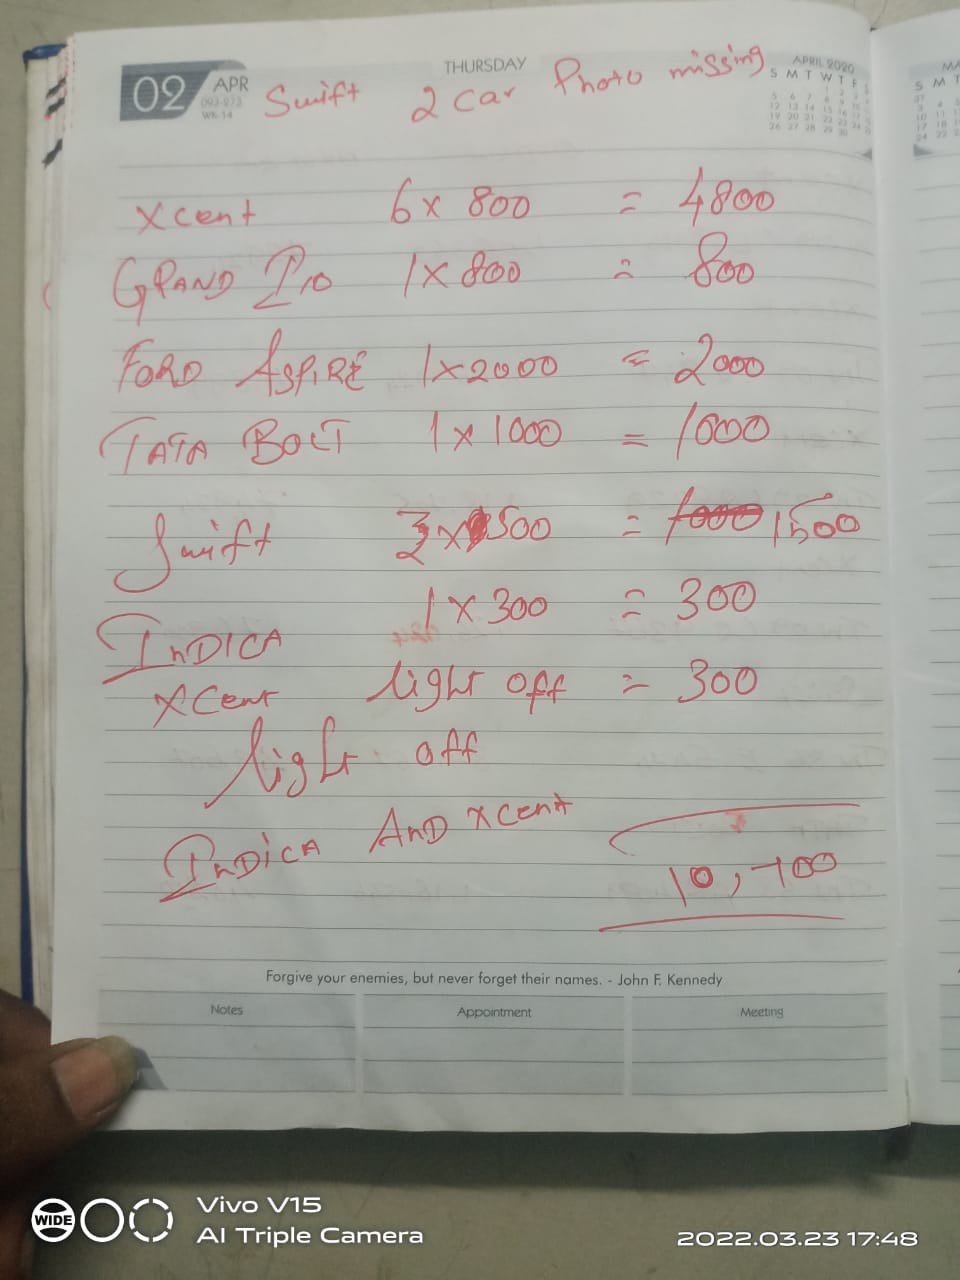 02 APR THURSDAY APRIL 2020
093-273
WK-14
S M T W T F S
Swift 2 car Photo missing
Xcent 6 x 800 = 4800
GRAND I10 1 x 800 = 800
FORD ASPIRE 1 x 2000 = 2000
TATA BOLT 1 x 1000 = 1000
Swift 3 x 500 = 1000 1500
INDICA 1 x 300 = 300
XCent light off = 300
light off
INDICA AND XCent
10,700
Forgive your enemies, but never forget their names. - John F. Kennedy
Notes Appointment Meeting
WIDE
Vivo V15
AI Triple Camera
2022.03.23 17:48